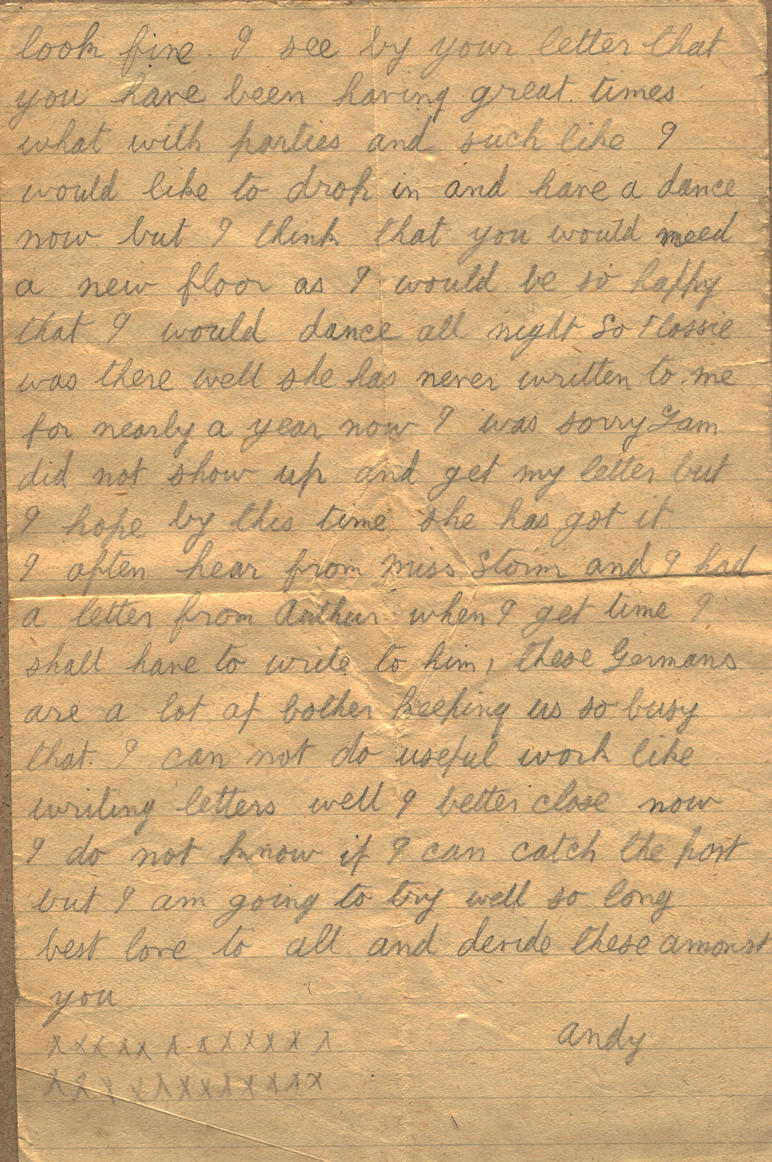 look fine. I see by your letter that
you have been having great times
what with parties and such like I
would like to drop in and have a dance
now but I think that you would need
a new floor as I would be so happy
that I would dance all night So Flossie
was there well she has never written to me
for nearly a year now I was sorry Jam
did not show up and get my letter but
I hope by this time she has got it
I often hear from Miss Storm and I had
a letter from Arthur when I get time I
shall have to write to him, these Germans
are a lot of bother keeping us so busy
that I can not do useful work like
writing letters well I better close now
I do not know if I can catch the post
but I am going to try well so long
best love to all and devide these amonst
you
Andy
xxxxx x xxxxxx x
xxxxxxxxxxxxx